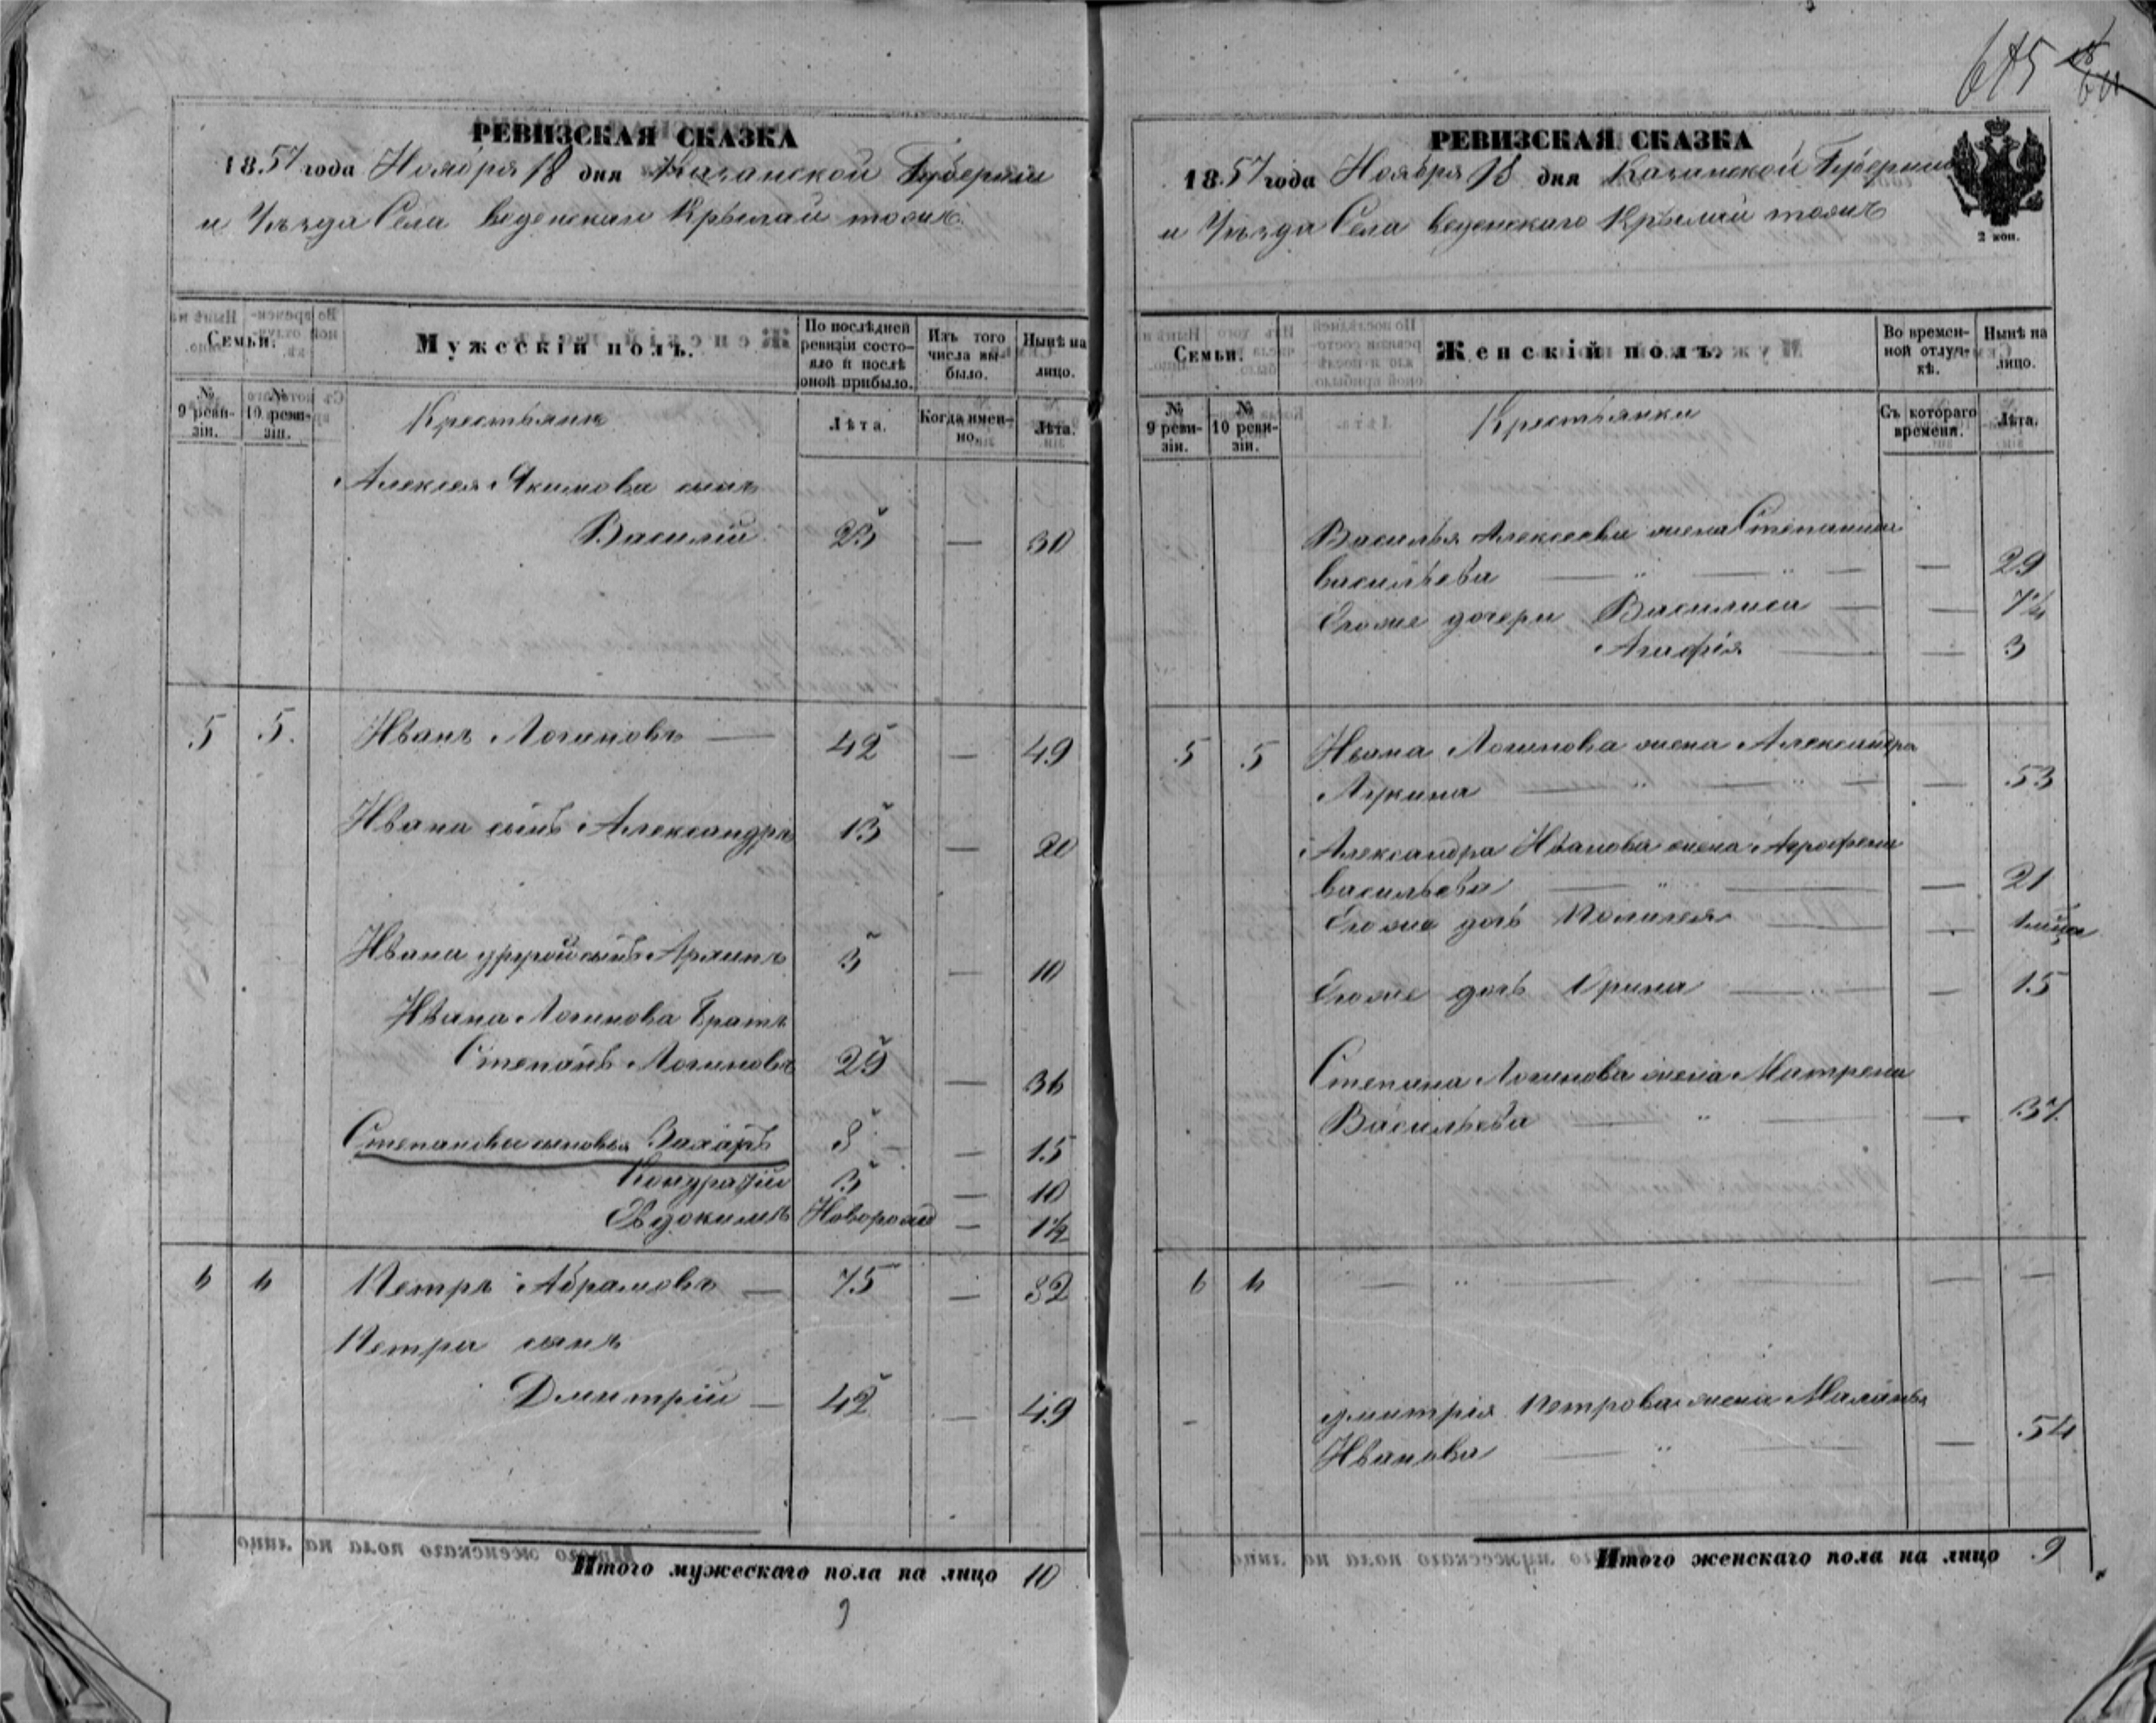 675
РЕВИЗСКАЯ СКАЗКА
1857 года Ноября 18 дня Казанской Губерніи
и Уѣзда Села Веденскаго Крылай тожъ
Семьи.
Мужескій полъ.
По послѣдней ревизіи состояло и послѣ оной прибыло.
Изъ того числа выбыло.
Нынѣ на лицо.
№ 9 ревизіи.
№ 10 ревизіи.
Крестьяне
Лѣта.
Когда именно.
Лѣта.
Алексея Якимова сынъ
Василій 23 — 30
5 5. Иванъ Логиновъ — 42 — 49
Ивана сынъ Александръ 13 — 20
Ивана другой сынъ Архипъ 3 — 10
Ивана Логинова братъ
Степанъ Логиновъ 29 — 36
Степановы сыновья Захаръ 8 — 15
Кондратій 3 — 10
Евдокимъ Новорожд — 1½
6 6 Петръ Абрамовъ — 75 — 82
Петра сынъ
Дмитрій — 42 — 49
Итого мужескаго пола на лицо 10
9
РЕВИЗСКАЯ СКАЗКА
1857 года Ноября 18 дня Казанской Губерніи
и Уѣзда Села Веденскаго Крылай тожъ
2 коп.
Семьи.
Женскій полъ.
Во временной отлучкѣ.
Нынѣ на лицо.
№ 9 ревизіи.
№ 10 ревизіи.
Крестьянки
Съ котораго времени.
Лѣта.
Василья Алексеева жена Степанида
Васильева — " — " — — 29
Егоже дочери Василиса — — 7½
Агафія — — 3
5 5 Ивана Логинова жена Александра
Лукина — " — " — — 53
Александра Иванова жена Аграфена
Васильева — " — — 21
Егоже дочь Пелагея — —
Егоже дочь Ирина — " — — 15
Степана Логинова жена Матрена
Васильева — " — — 37
6 6 — " — — — —
Дмитрія Петрова жена Маланья
Иванова — " — — 54
Итого женскаго пола на лицо 9